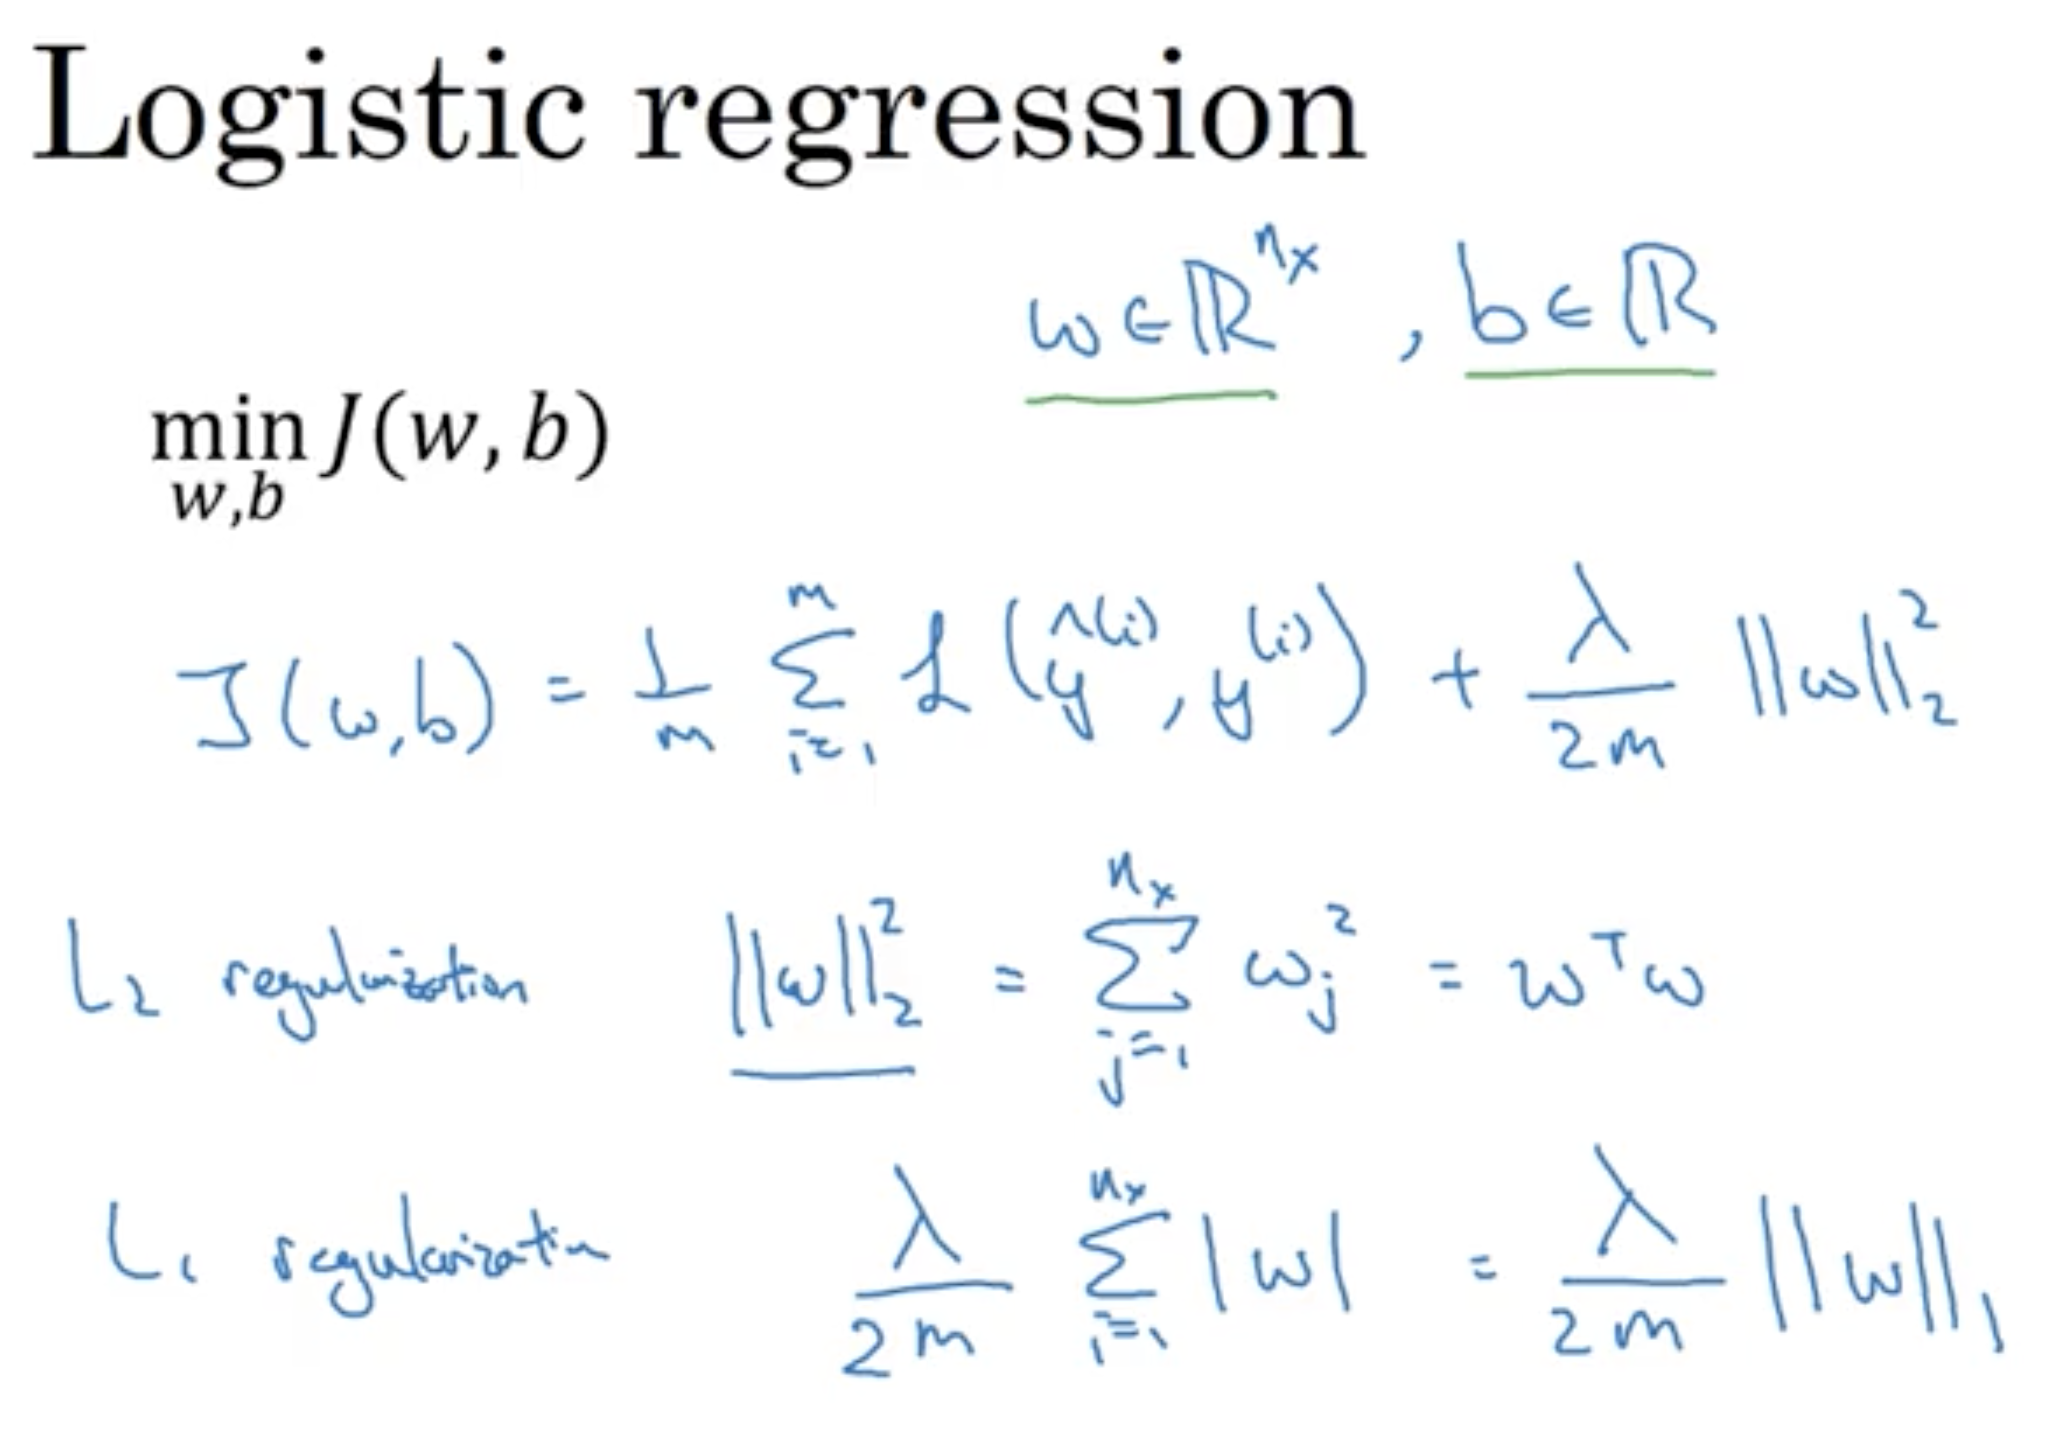 Logistic regression
w ∈ ℝ^{n_x}, b ∈ ℝ
min_{w,b} J(w, b)
J(w,b) = \frac{1}{m} \sum_{i=1}^{m} ℒ(ŷ^{(i)}, y^{(i)}) + \frac{λ}{2m} ||w||_2^2
L_2 regularization ||w||_2^2 = \sum_{j=1}^{n_x} w_j^2 = w^T w
L_1 regularization \frac{λ}{2m} \sum_{i=1}^{n_x} |w| = \frac{λ}{2m} ||w||_1